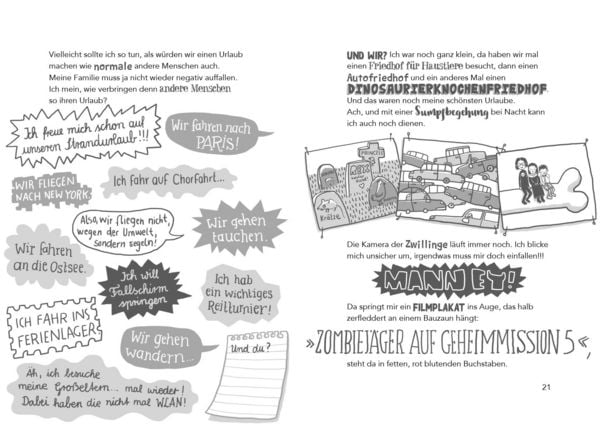 Vielleicht sollte ich so tun, als würden wir einen Urlaub
machen wie normale andere Menschen auch.
Meine Familie muss ja nicht wieder negativ auffallen.
Ich mein, wie verbringen denn andere Menschen
so ihren Urlaub?
Ich freue mich schon auf
unseren Strandurlaub!!!
Wir fahren nach
PARIS!
WIR FLIEGEN
NACH NEW YORK.
Ich fahr auf Chorfahrt...
Also, wir fliegen nicht,
wegen der Umwelt,
sondern segeln!
Wir gehen
tauchen.
Wir fahren
an die Ostsee.
Ich will
Fallschirm
springen
Ich hab
ein wichtiges
Reitturnier!
ICH FAHR INS
FERIENLAGER
Wir gehen
wandern...
Und du?
Äh, ich besuche
meine Großeltern... mal wieder!
Dabei haben die nicht mal WLAN!
UND WIR? Ich war noch ganz klein, da haben wir mal
einen Friedhof für Haustiere besucht, dann einen
Autofriedhof und ein anderes Mal einen
DINOSAURIERKNOCHENFRIEDHOF.
Und das waren noch meine schönsten Urlaube.
Ach, und mit einer Sumpfbegehung bei Nacht kann
ich auch noch dienen.
PRINCE
REX
Krätze
Die Kamera der Zwillinge läuft immer noch. Ich blicke
mich unsicher um, irgendwas muss mir doch einfallen!!!
MANN EY!
Da springt mir ein FILMPLAKAT ins Auge, das halb
zerfleddert an einem Bauzaun hängt:
»ZOMBIEJÄGER AUF GEHEIMMISSION 5«,
steht da in fetten, rot blutenden Buchstaben.
21